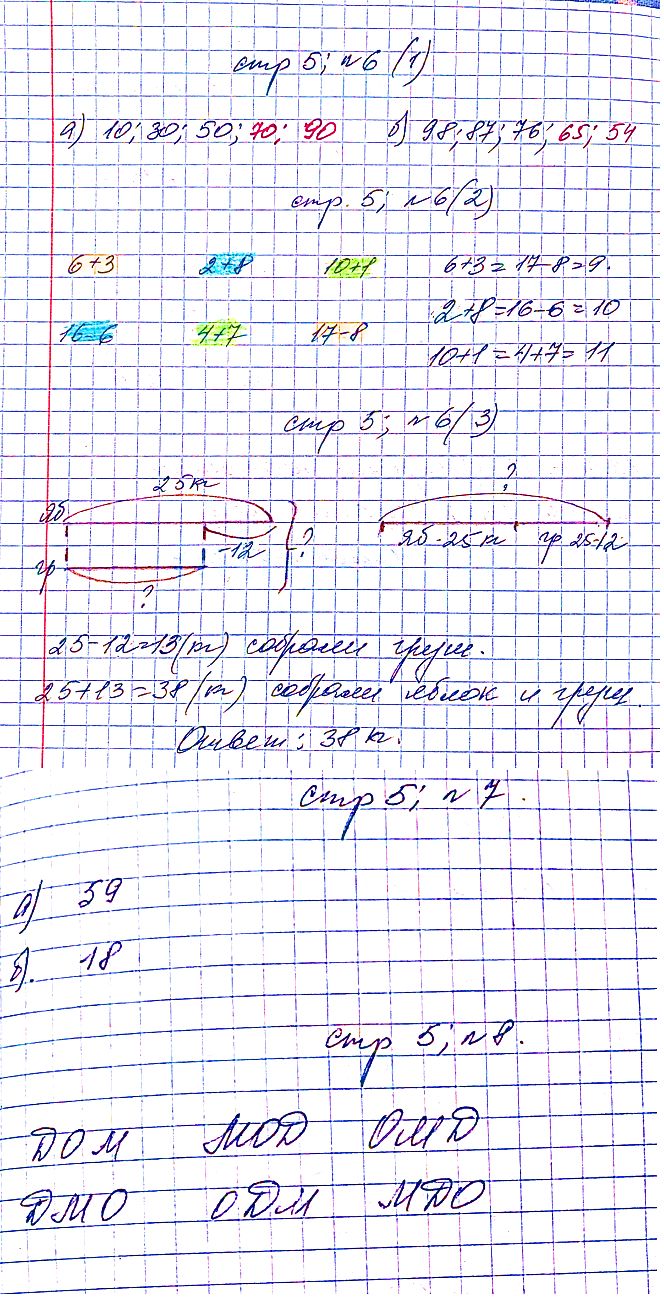 стр 5; №6 (1)
а) 10; 30; 50; 70; 90 б) 98; 87; 76; 65; 54
стр. 5; №6(2)
6+3 2+8 10+1 6+3=17-8=9.
2+8=16-6=10
16-6 4+7 17-8
10+1=4+7=11
стр 5; №6(3)
25кг ?
яб
-12 ? яб-25кг гр 25-12
гр
?
25-12=13(кг) собрали груш.
25+13=38(кг) собрали яблок и груш.
Ответ: 38 кг.
стр 5; №7.
а) 59
б). 18
стр 5; №8.
ДОМ МОД ОМД
ДМО ОДМ МДО